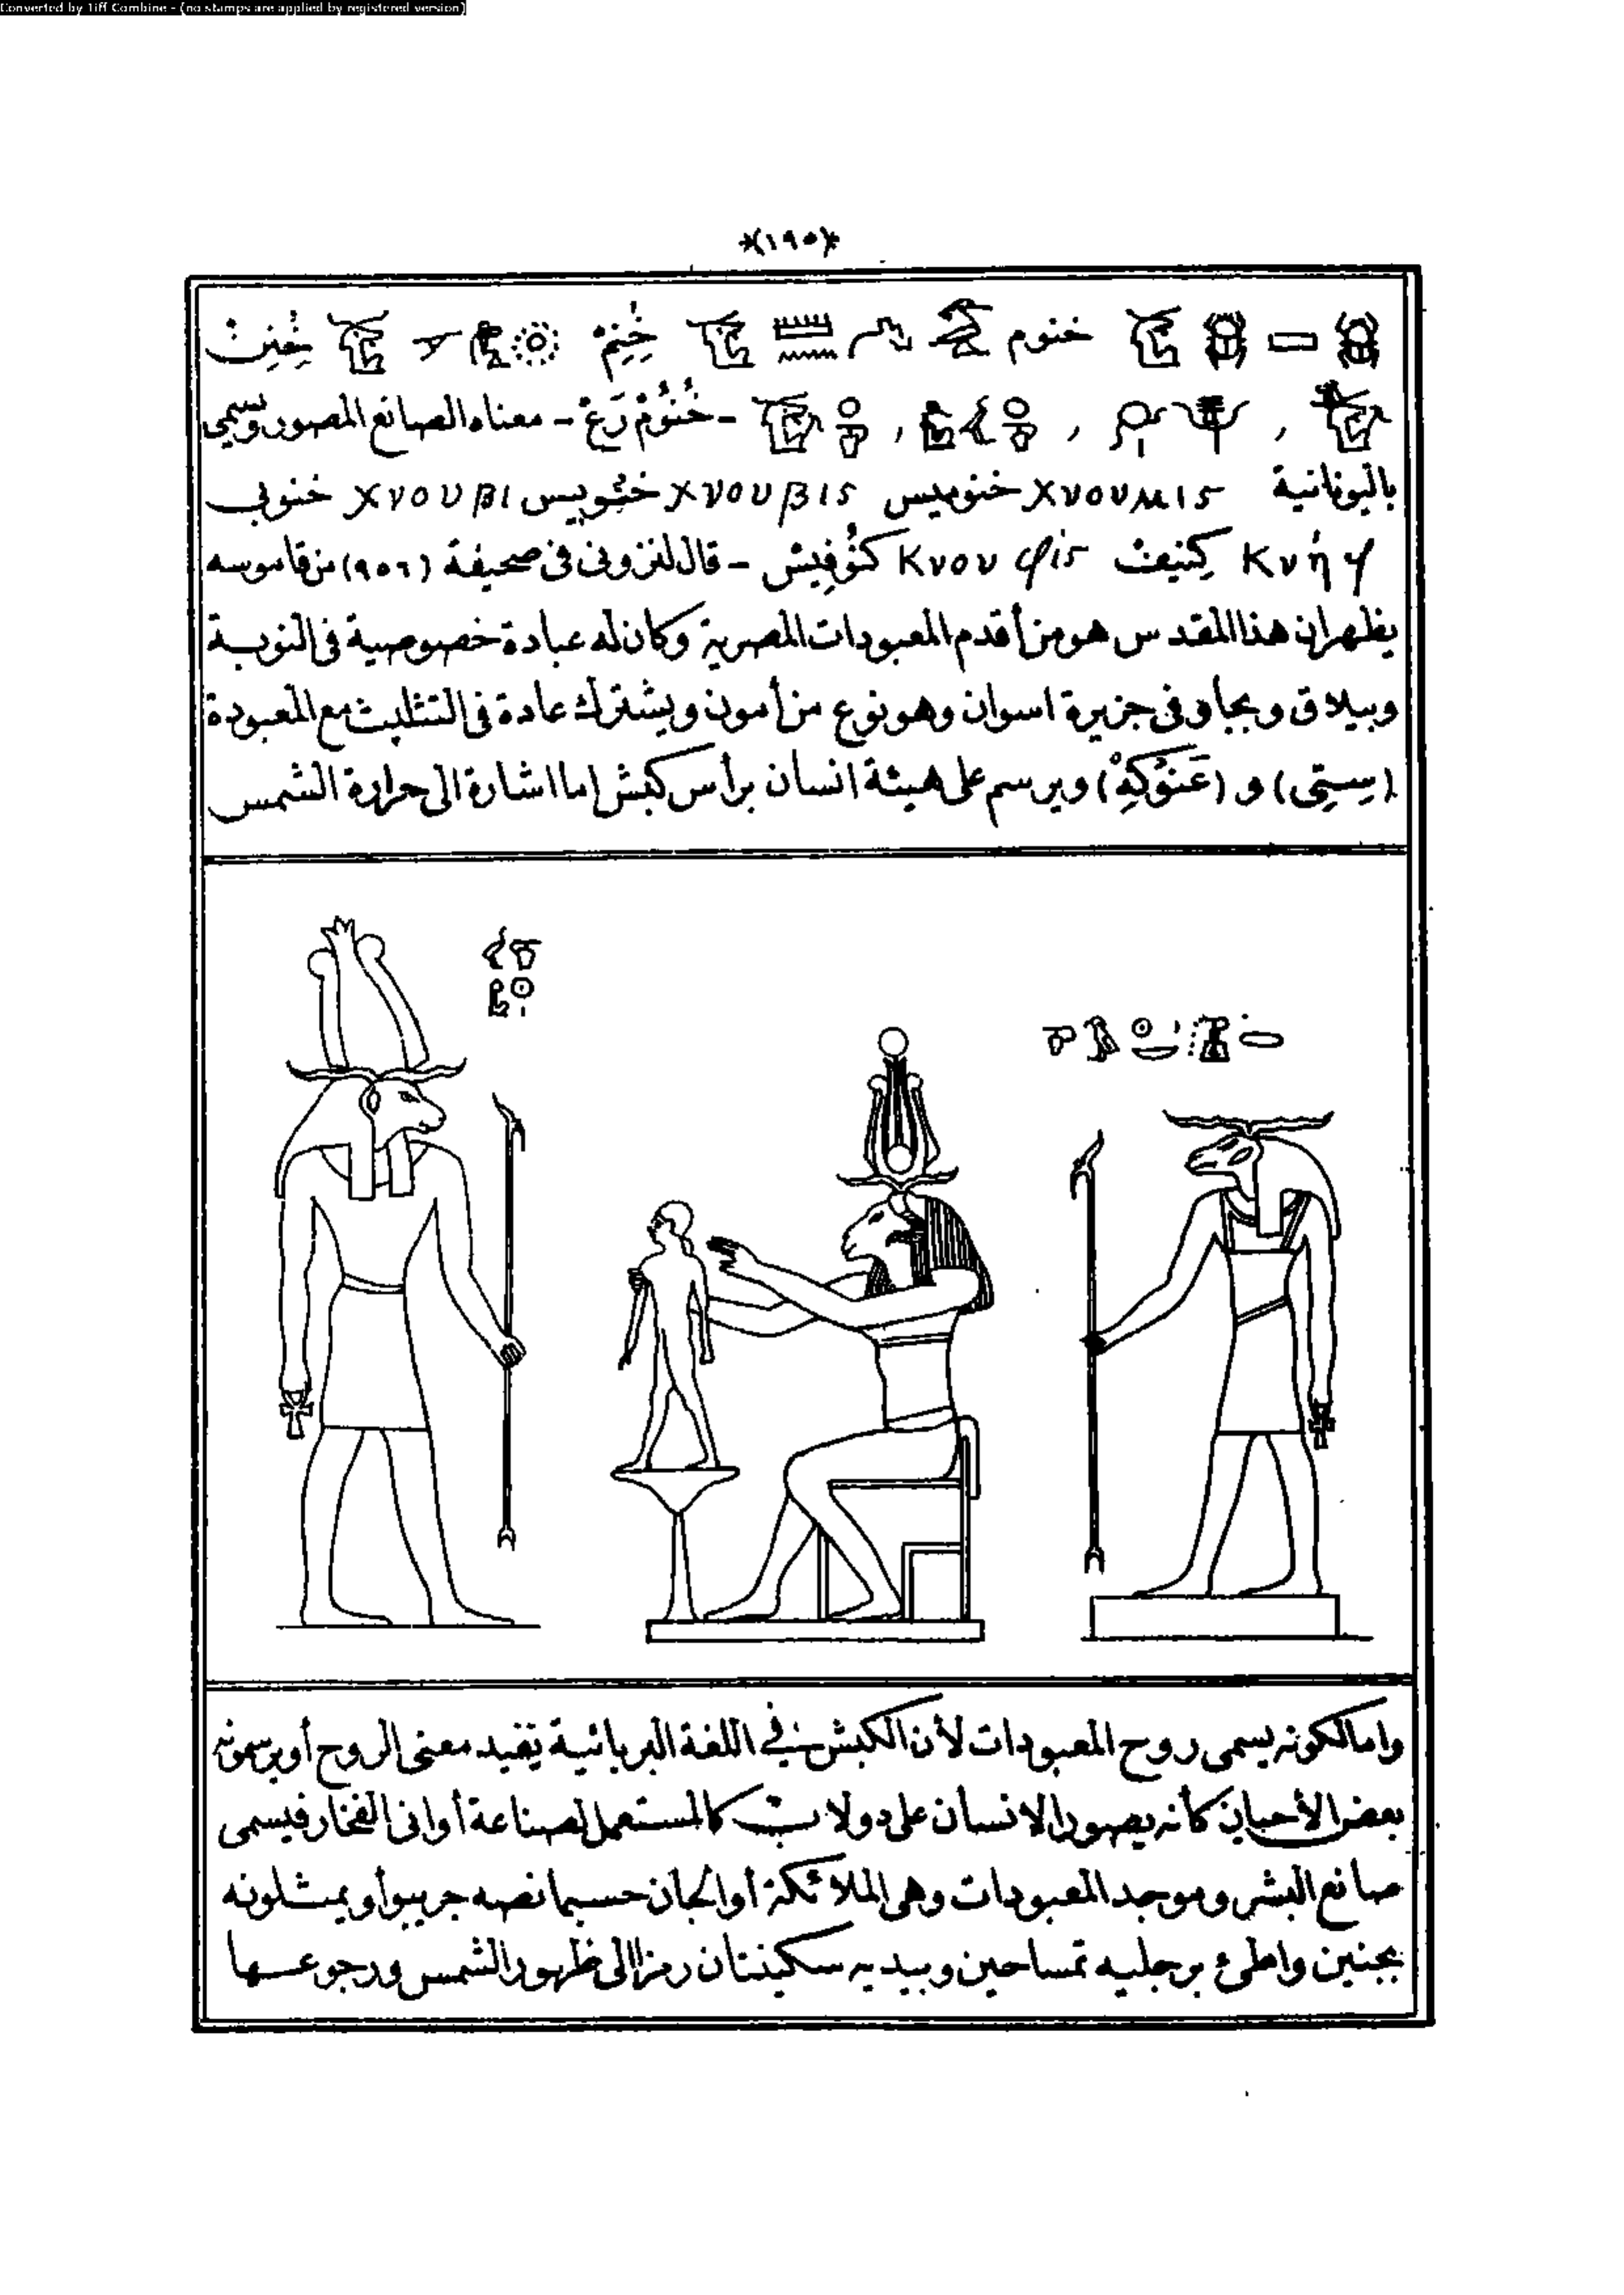 Converted by Tiff Combine - (no stamps are applied by registered version)
*(١٩٥)*
خنوم خِنِمْ خِنِتْ
- خُنُومْ رَعْ - معناه الصانع المصور ويسمى
بالیونانیة Χνουμις خنوميس Χνουβις خنوبيس Χνουβι خنوبى
Κνήφ كِنيفْ Κνουφις كنُوفِيسْ - قال لنزونى فى صحيفة (٩٥٦) من قاموسه
يظهران هذا المقدس هو من أقدم المعبودات المصرية وكان له عبادة خصوصية فى النوبة
وبيلاق وبجاو فى جزيرة اسوان وهو نوع من أمون ويشترك عادة فى التثليث مع المعبودة
(سِتِى) و (عَنُوكِهْ) ويرسم على هيئة انسان برأس كبش اما اشارة الى حرارة الشمس
واما لكونه يسمى روح المعبودات لأن الكبش فى اللغة البربائية يفيد معنى الروح أو يرسمونه
بعض الأحيان كأنه يصور الانسان على دولاب كالمستعمل لصناعة أوانى الفخار فيسمى
صانع البشر وموجد المعبودات وهى الملائكة أوالجان حسبما نصه جريبوأو يمثلونه
بجنين واطئ برجليه تمساحين وبيديه سكينتان رمزا الى ظهور الشمس ورجوعها